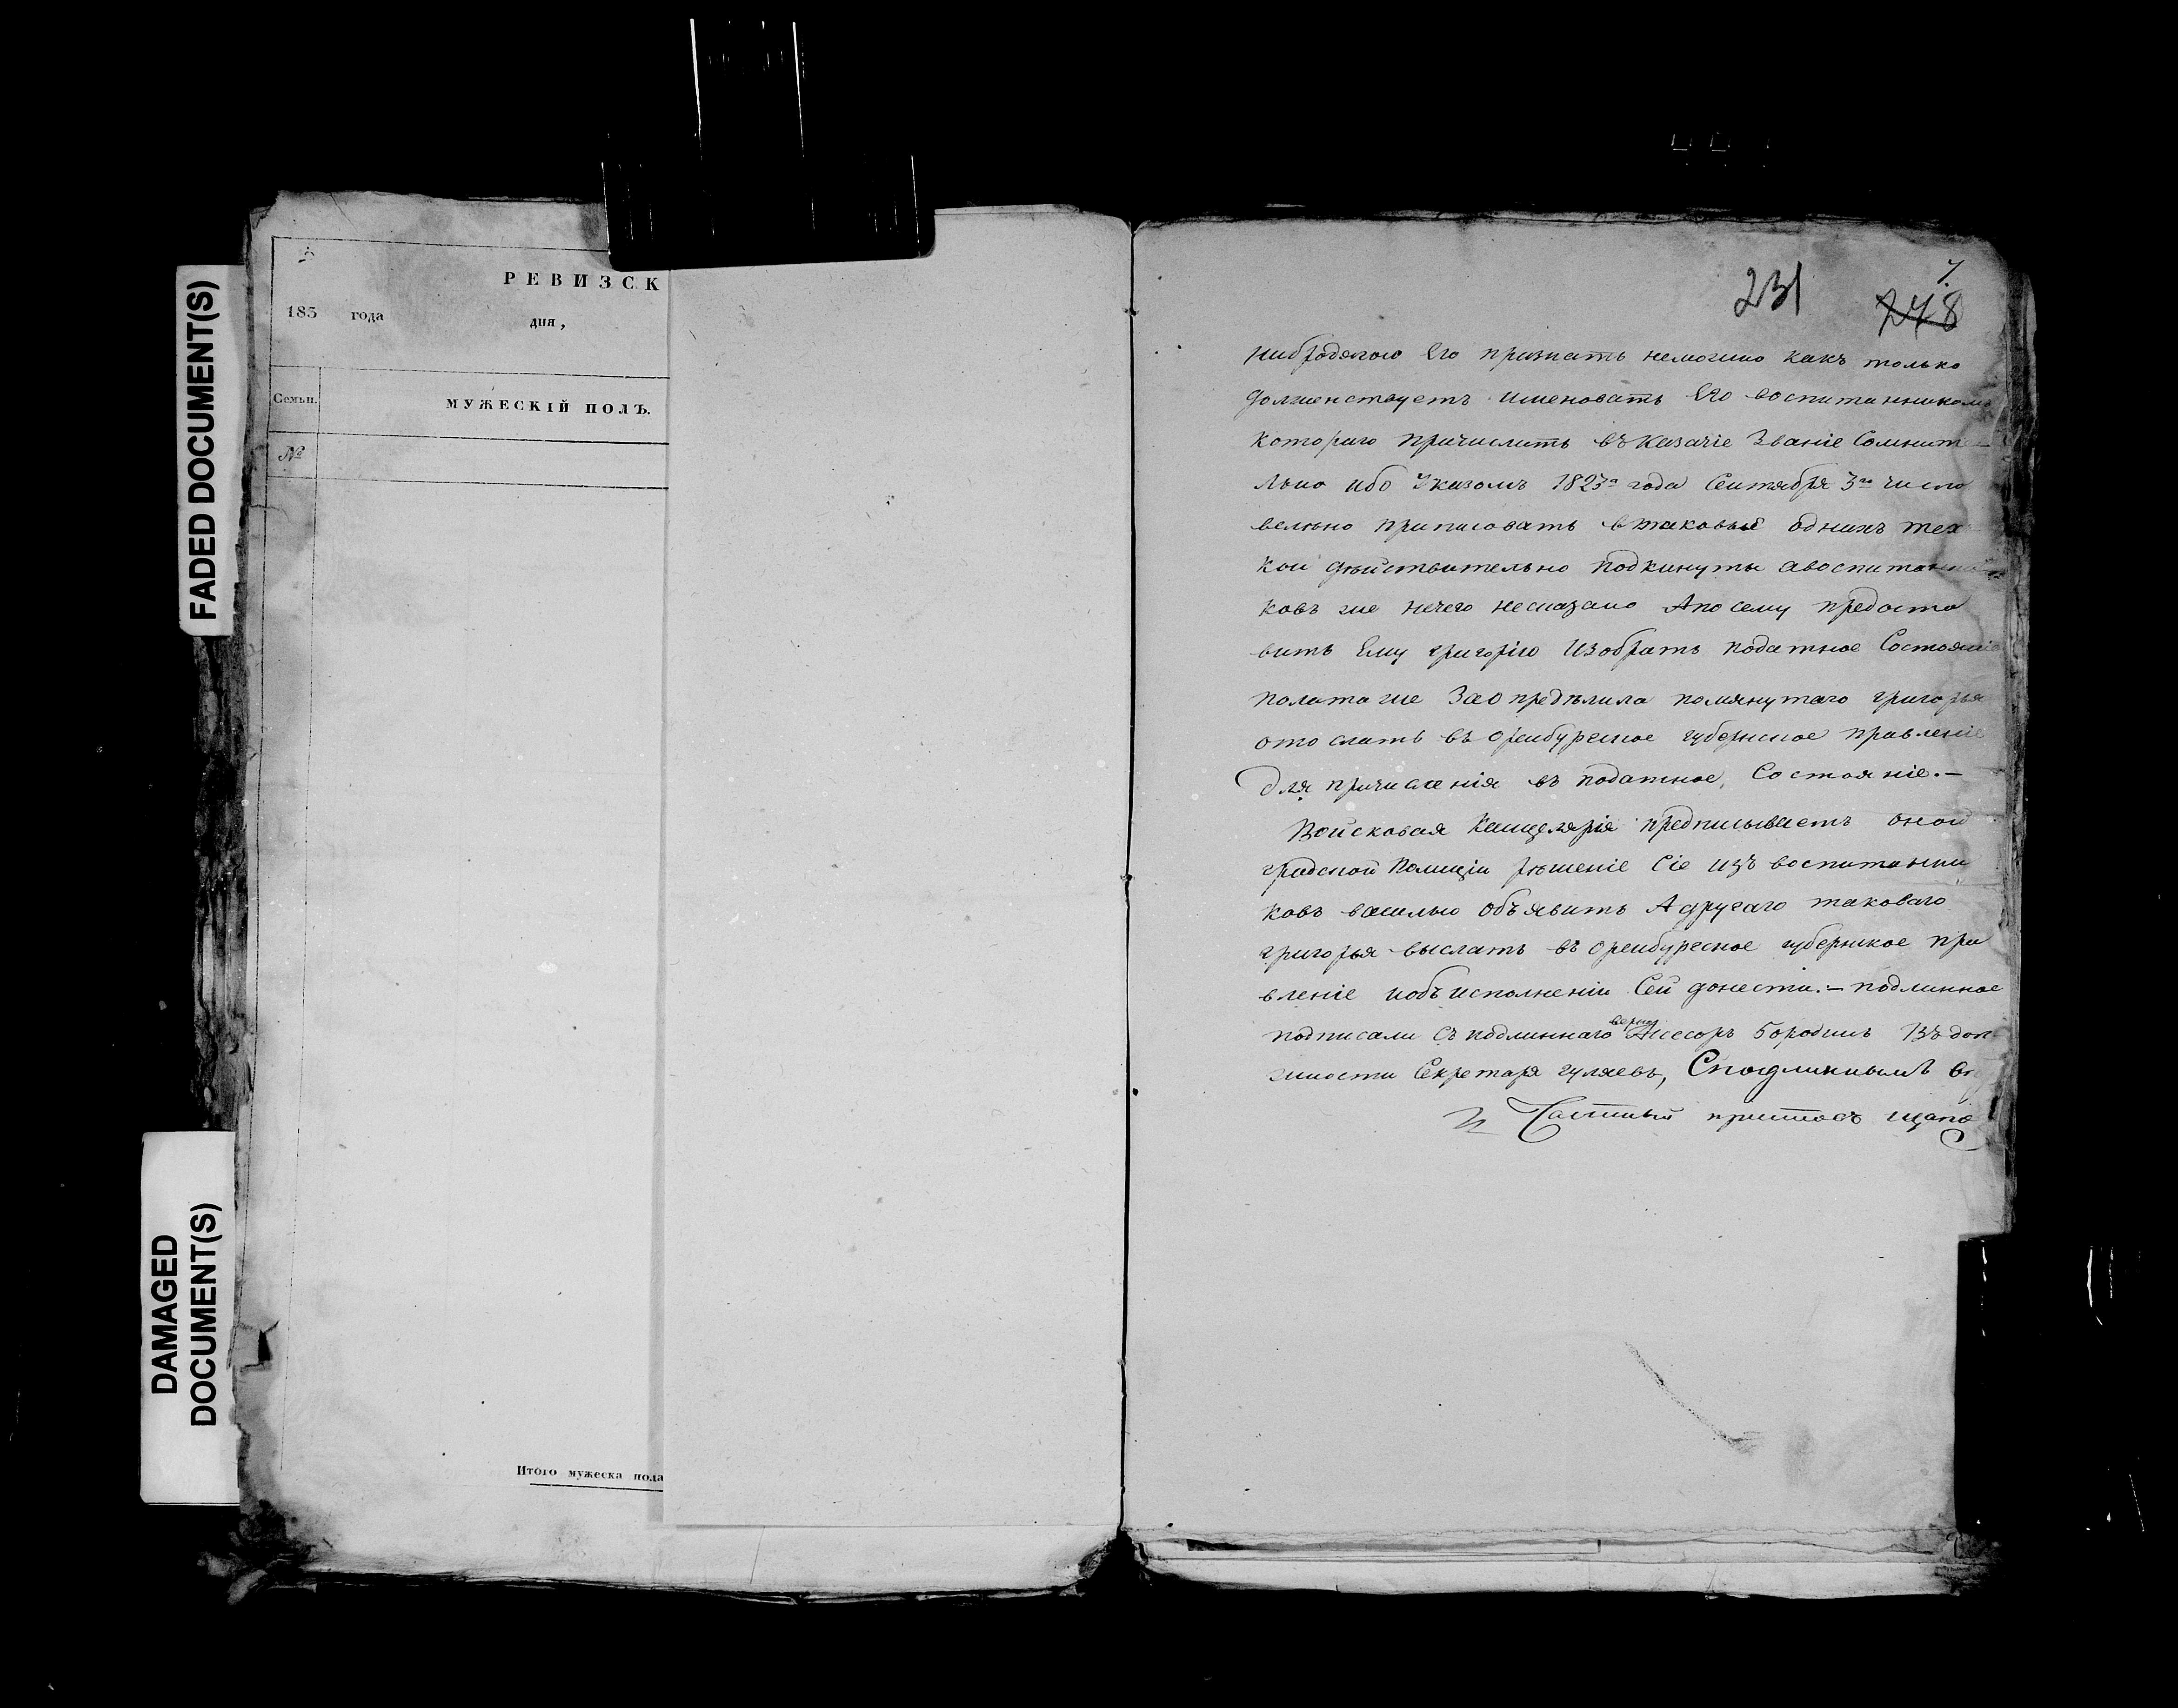 FADED DOCUMENT(S)
DAMAGED
DOCUMENT(S)
РЕВИЗСК
185 года
дня,
Семьи.
МУЖЕСКІЙ ПОЛЪ.
№
Итого мужеска пола
7
231 248
нибродягою Его признать неможно какъ только
долженствуетъ именовать Его воспитанникомъ
котораго причислить въ казачіе Званіе Сомнит
льно ибо Указомъ 1823го года Сентября 3го числа
велено приписовать в таковые однихъ тех
кои действительно подкинуты авоспитанни
ковъ же нечего несказано Апосему предоста
вить Ему григорію Избрать податное Состояніе
полата же Заопределила помянутаго григорья
отослать въ Оренбургское губернское правленіе
Для причисленія въ податное Состояніе.—
Войсковая Канцелярія предписываетъ оной
градской Полиціи решеніе Сіе изъ воспитанни
ковъ василью Объявить А другаго таковаго
григорья выслать въ Оренбургское губернское пра
вленіе и объ исполненіи Сей донести.— подлинное
подписали Съ подлиннаго верно Асесоръ Бородинъ Въ дол
жности Секретаря гуляевъ, Сподлиннымъ
Частный приставъ